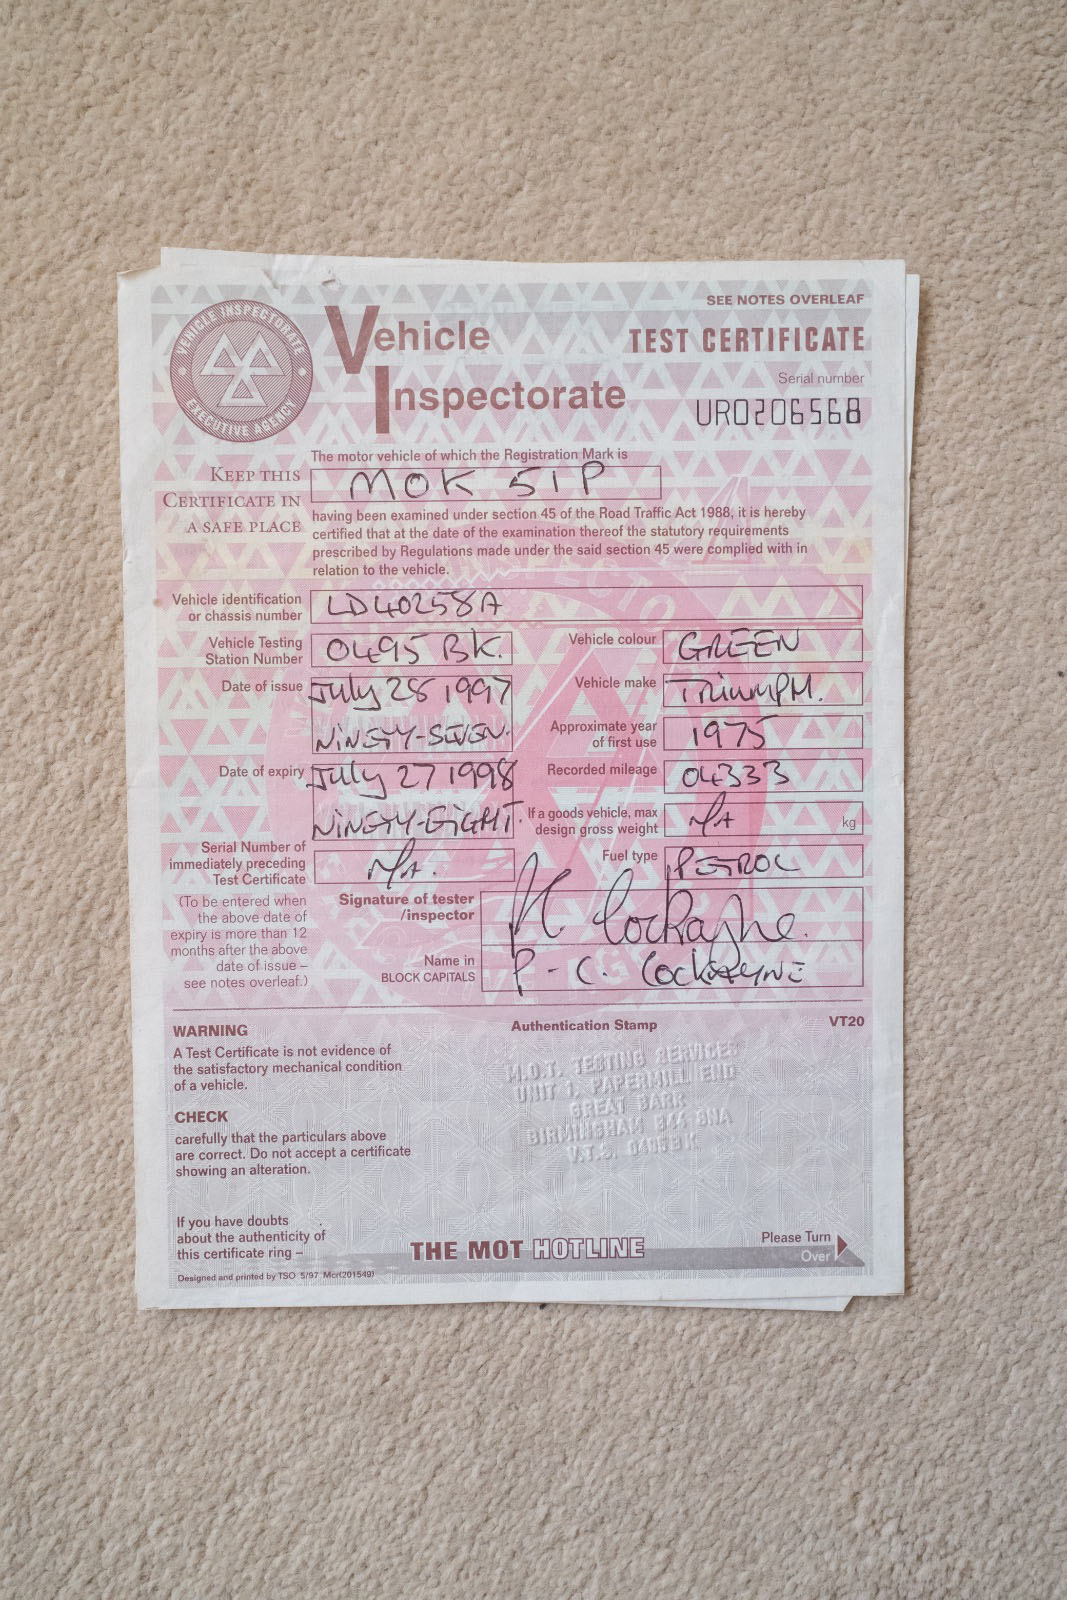 SEE NOTES OVERLEAF
VEHICLE INSPECTORATE
EXECUTIVE AGENCY
Vehicle
Inspectorate
TEST CERTIFICATE
Serial number
UR0206568
The motor vehicle of which the Registration Mark is
KEEP THIS
CERTIFICATE IN
A SAFE PLACE
MOK 51P
having been examined under section 45 of the Road Traffic Act 1988, it is hereby
certified that at the date of the examination thereof the statutory requirements
prescribed by Regulations made under the said section 45 were complied with in
relation to the vehicle.
Vehicle identification
or chassis number
LD40258A
Vehicle Testing
Station Number
0495 BK.
Vehicle colour
GREEN
Date of issue
July 28 1997
NINETY-SEVEN.
Vehicle make
TRIUMPH.
Approximate year
of first use
1975
Date of expiry
July 27 1998
NINETY-EIGHT.
Recorded mileage
04333
If a goods vehicle, max
design gross weight
N/A
kg
Serial Number of
immediately preceding
Test Certificate
N/A.
Fuel type
PETROL
(To be entered when
the above date of
expiry is more than 12
months after the above
date of issue –
see notes overleaf.)
Signature of tester
/inspector
Cockayne.
Name in
BLOCK CAPITALS
P - C. COCKAYNE
WARNING
A Test Certificate is not evidence of
the satisfactory mechanical condition
of a vehicle.
Authentication Stamp
VT20
M.O.T. TESTING SERVICES
UNIT 1, PAPERMILL END
GREAT BARR
BIRMINGHAM B44 8NA
V.T.S. 0495BK
CHECK
carefully that the particulars above
are correct. Do not accept a certificate
showing an alteration.
If you have doubts
about the authenticity of
this certificate ring –
THE MOT HOTLINE
Please Turn
Over
Designed and printed by TSO 5/97 Mcr(201549)